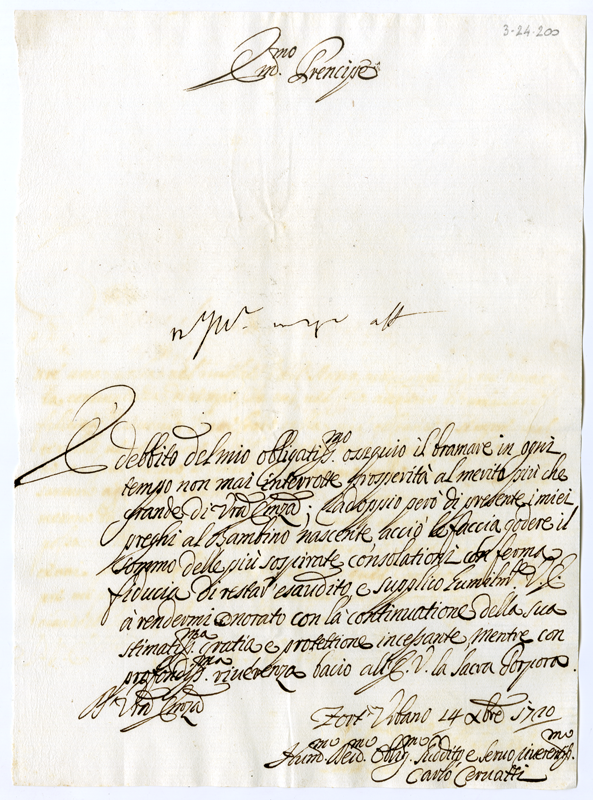 3-24-200
Em.mo Prencipe
È debbito del mio obligatiss.mo ossequio il bramare in ogni
tempo non mai interrotte prosperità al merito più che
grande di Vra Emza; Radoppio però di presente i miei
preghi al Bambino nascente acciò le faccia godere il
sommo delle più sospirate consolationi con ferma
fiducia di restar esaudito, e supplico humilm.te V. E.
à rendermi onorato con la continuatione della sua
stimatiss.ma gratia e protettione incessante mentre con
profondiss.ma riverenza bacio all' E. V. la Sacra Porpora.
Di Vra Emza
Forte Urbano 14 Xbre 1720
Hum.mo Dev.mo Oblig.mo Suddito e Servo riverentiss.mo
Carlo Cervatti